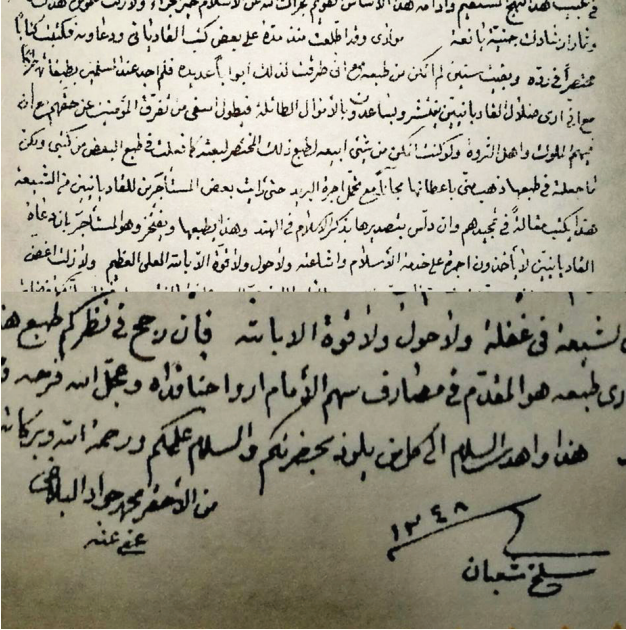 في عجيب هذا النهج المستقيم وادامة هذا الاساس القويم جزاك الله عن الاسلام خير جزاء ولا زلت
ونارا رشادك جنية يانعة مولاي وقد اطلعت منذ مدة على بعض كتب القادياني ودعاويه فكتبت كتابا
مختصراً في رده وبقيت سنتين لم اتمكن من طبعه مع اني طرقت لذلك ابوابا عديدة فلم اجد عند المسلمين
مع اني ارى ضلال القاديانيين ينتشر ويساعدون بالاموال الطائلة فيطول اسفي من تفرق المؤمنين عن حقهم مع ان
فيهم الملوك واهل الثروة ولو كنت اتمكن من شئ ابيعه لطبع ذلك المختصر لبعته كما فعلت في طبع البعض من كتبي ولكن
ما جعلته في طبعها ذهب مني باعطائها مجاناً مع تحمل اجرة البريد حتى رايت بعض المستأجرين للقاديانيين من الشيعة
هذا يكتب مقالة في تمجيدهم وان دلس بتصديرها بذكر الاسلام في الهند وهذا يطبعها ويفتخر وهو المستأجر بان دعاة
القاديانيين لا يأخذون اجرة على خدمة الاسلام واشاعته ولا حول ولا قوة الا بالله العلي العظيم ولا زلت
الشيعة في غفلة ولا حول ولا قوة الا بالله فان رجح في نظركم طبع
ارى طبعه هو المقدم في مصارف سهم الامام ارواحنا فداه وعجل الله فرجه
هذا واهدي السلام الى كل من يلوذ بحضرتكم والسلام عليكم ورحمة الله وبركاته
من الاحقر محمد جواد البلاغي
عفي عنه
١٣٤٨
سلخ شعبان